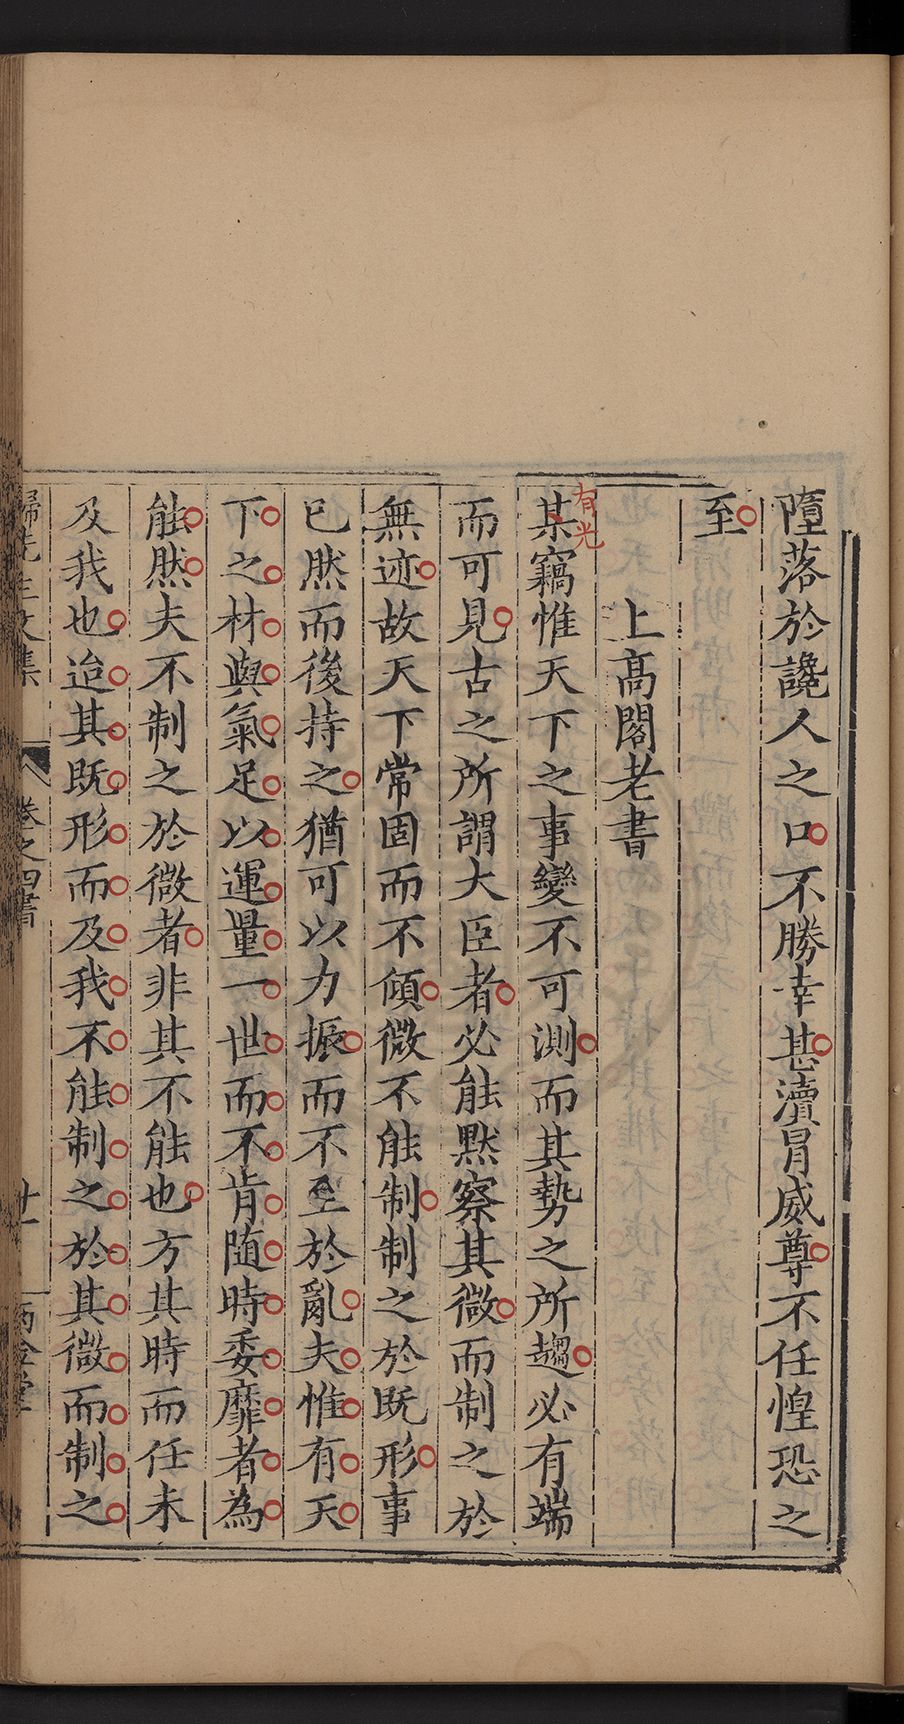 墮落於讒人之口不勝幸甚瀆冒威尊不任惶恐之
至
上高閣老書
有光
某竊惟天下之事變不可測而其勢之所趨必有端
而可見古之所謂大臣者必能默察其微而制之於
無迹故天下常固而不傾微不能制制之於既形事
已然而後持之猶可以力振而不至於亂夫惟有天
下之材與氣足以運量一世而不肯隨時委靡者為
能然夫不制之於微者非其不能也方其時而任未
及我也迨其既形而及我不能制之於其微而制之
歸先生文集 卷之四書 廿一